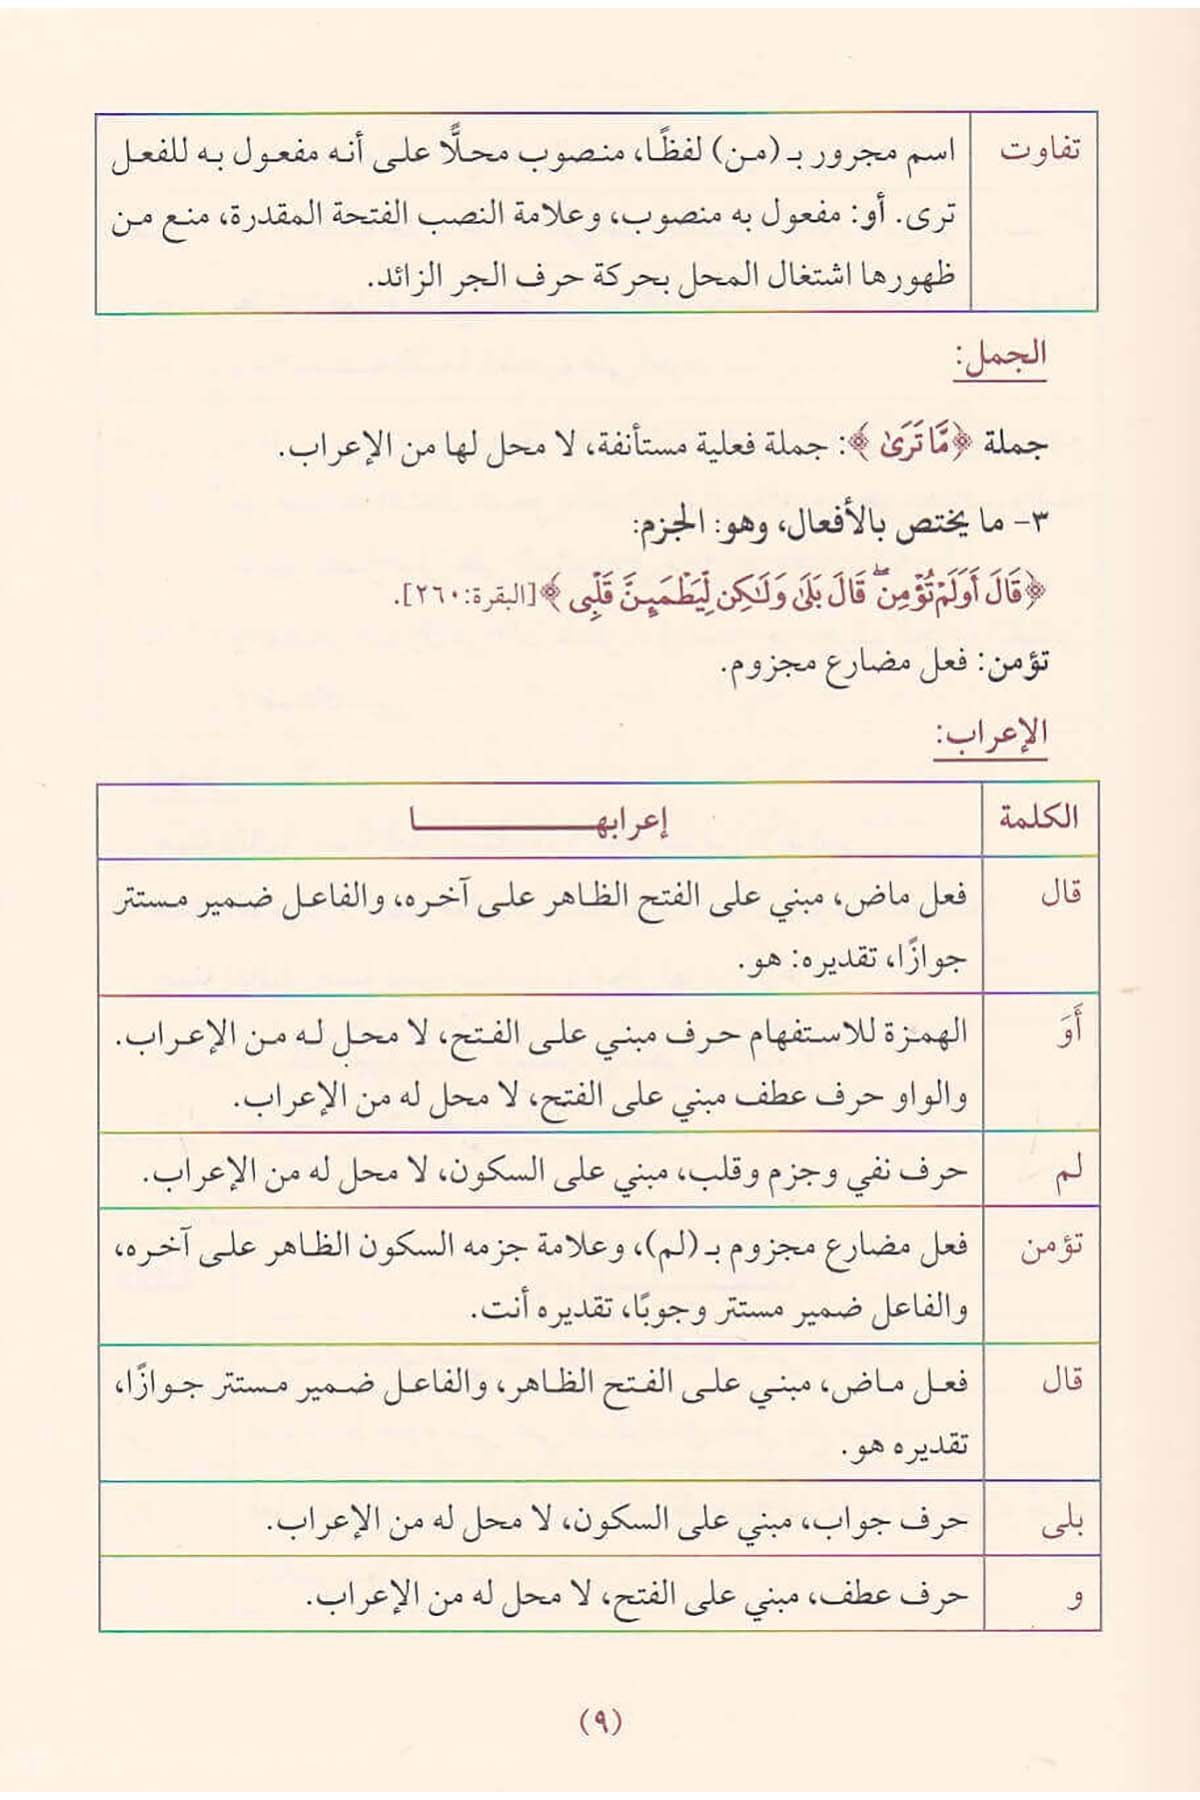 تفاوت اسم مجرور بـ (من) لفظًا، منصوب محلًّا على أنه مفعول به للفعل
ترى. أو: مفعول به منصوب، وعلامة النصب الفتحة المقدرة، منع من
ظهورها اشتغال المحل بحركة حرف الجر الزائد.
الجمل:
جملة ﴿مَّا تَرَىٰ﴾: جملة فعلية مستأنفة، لا محل لها من الإعراب.
٣- ما يختص بالأفعال، وهو: الجزم:
﴿قَالَ أَوَلَمْ تُؤْمِن ۖ قَالَ بَلَىٰ وَلَٰكِن لِّيَطْمَئِنَّ قَلْبِي﴾ [البقرة: ٢٦٠].
تؤمن: فعل مضارع مجزوم.
الإعراب:
الكلمة إعرابهـــــــــــا
قال فعل ماض، مبني على الفتح الظاهر على آخره، والفاعل ضمير مستتر
جوازًا، تقديره: هو.
أَوَ الهمزة للاستفهام حرف مبني على الفتح، لا محل له من الإعراب.
والواو حرف عطف مبني على الفتح، لا محل له من الإعراب.
لم حرف نفي وجزم وقلب، مبني على السكون، لا محل له من الإعراب.
تؤمن فعل مضارع مجزوم بـ (لم)، وعلامة جزمه السكون الظاهر على آخره،
والفاعل ضمير مستتر وجوبًا، تقديره أنت.
قال فعل ماض، مبني على الفتح الظاهر، والفاعل ضمير مستتر جوازًا،
تقديره هو.
بلى حرف جواب، مبني على السكون، لا محل له من الإعراب.
و حرف عطف، مبني على الفتح، لا محل له من الإعراب.
(٩)